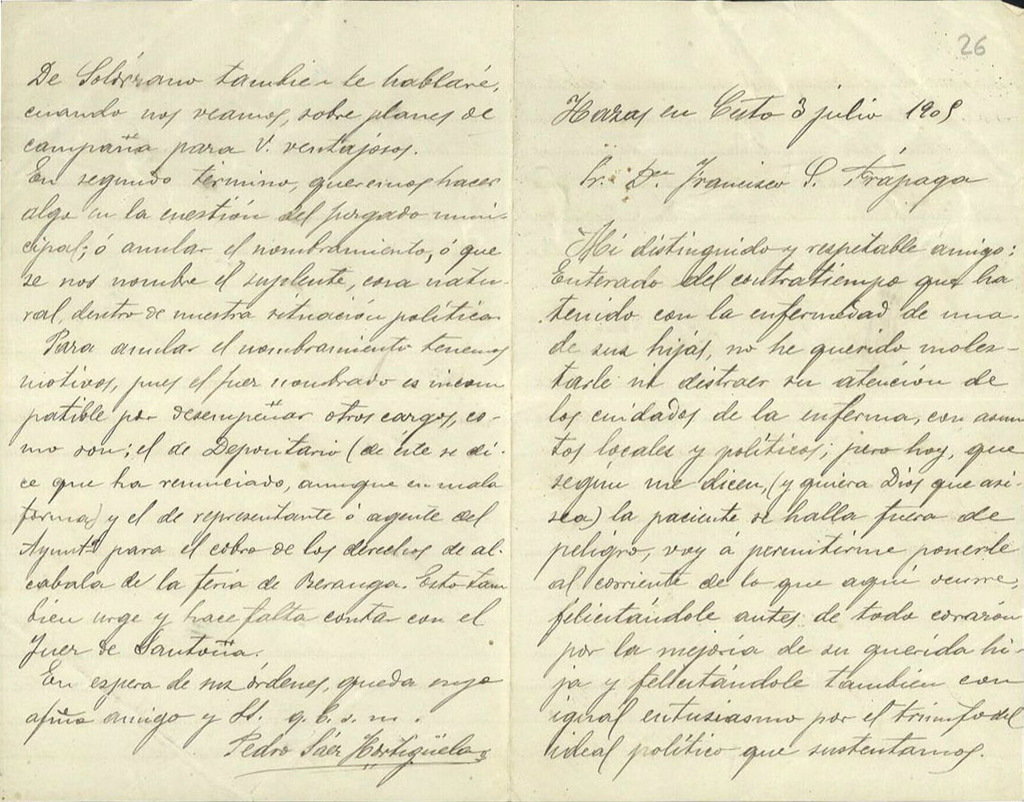 De Solórzano tambien le hablaré,
cuando nos veamos, sobre planes de
campaña para V. ventajosos.
En segundo término, queremos hacer
algo en la cuestión del juzgado muni-
cipal; ó anular el nombramiento, ó que
se nos nombre el suplente, cosa natu-
ral, dentro de nuestra situación política.
Para anular el nombramiento tenemos
motivos, pues el juez nombrado es incom
patible por desempeñar otros cargos, co-
mo son; el de Depositario (de este se di-
ce que ha renunciado, aunque en mala
forma) y el de representante ó agente del
Ayuntº para el cobro de los derechos de al-
cabala de la feria de Beranga. Esto tam
bien urge y hace falta contar con el
Juez de Santoña.
En espera de sus órdenes, queda suyo
afmo amigo y SS. q. b. s. m.
Pedro Sáez Hortigüela
26
Hazas en Cesto 3 julio 1905
Sr. Dn Francisco S. Trápaga
Mi distinguido y respetable amigo:
Enterado del contratiempo que ha
tenido con la enfermedad de una
de sus hijas, no he querido moles-
tarle ni distraer su atención de
los cuidados de la enferma, con asun
tos locales y políticos; pero hoy, que
según me dicen, (y quiera Dios que asi
sea) la paciente se halla fuera de
peligro, voy á permitirme ponerle
al corriente de lo que aquí ocurre,
felicitándole antes de todo corazón
por la mejoría de su querida hi-
ja y felicitándole tambien con
igual entusiasmo por el triunfo del
ideal político que sustentamos.